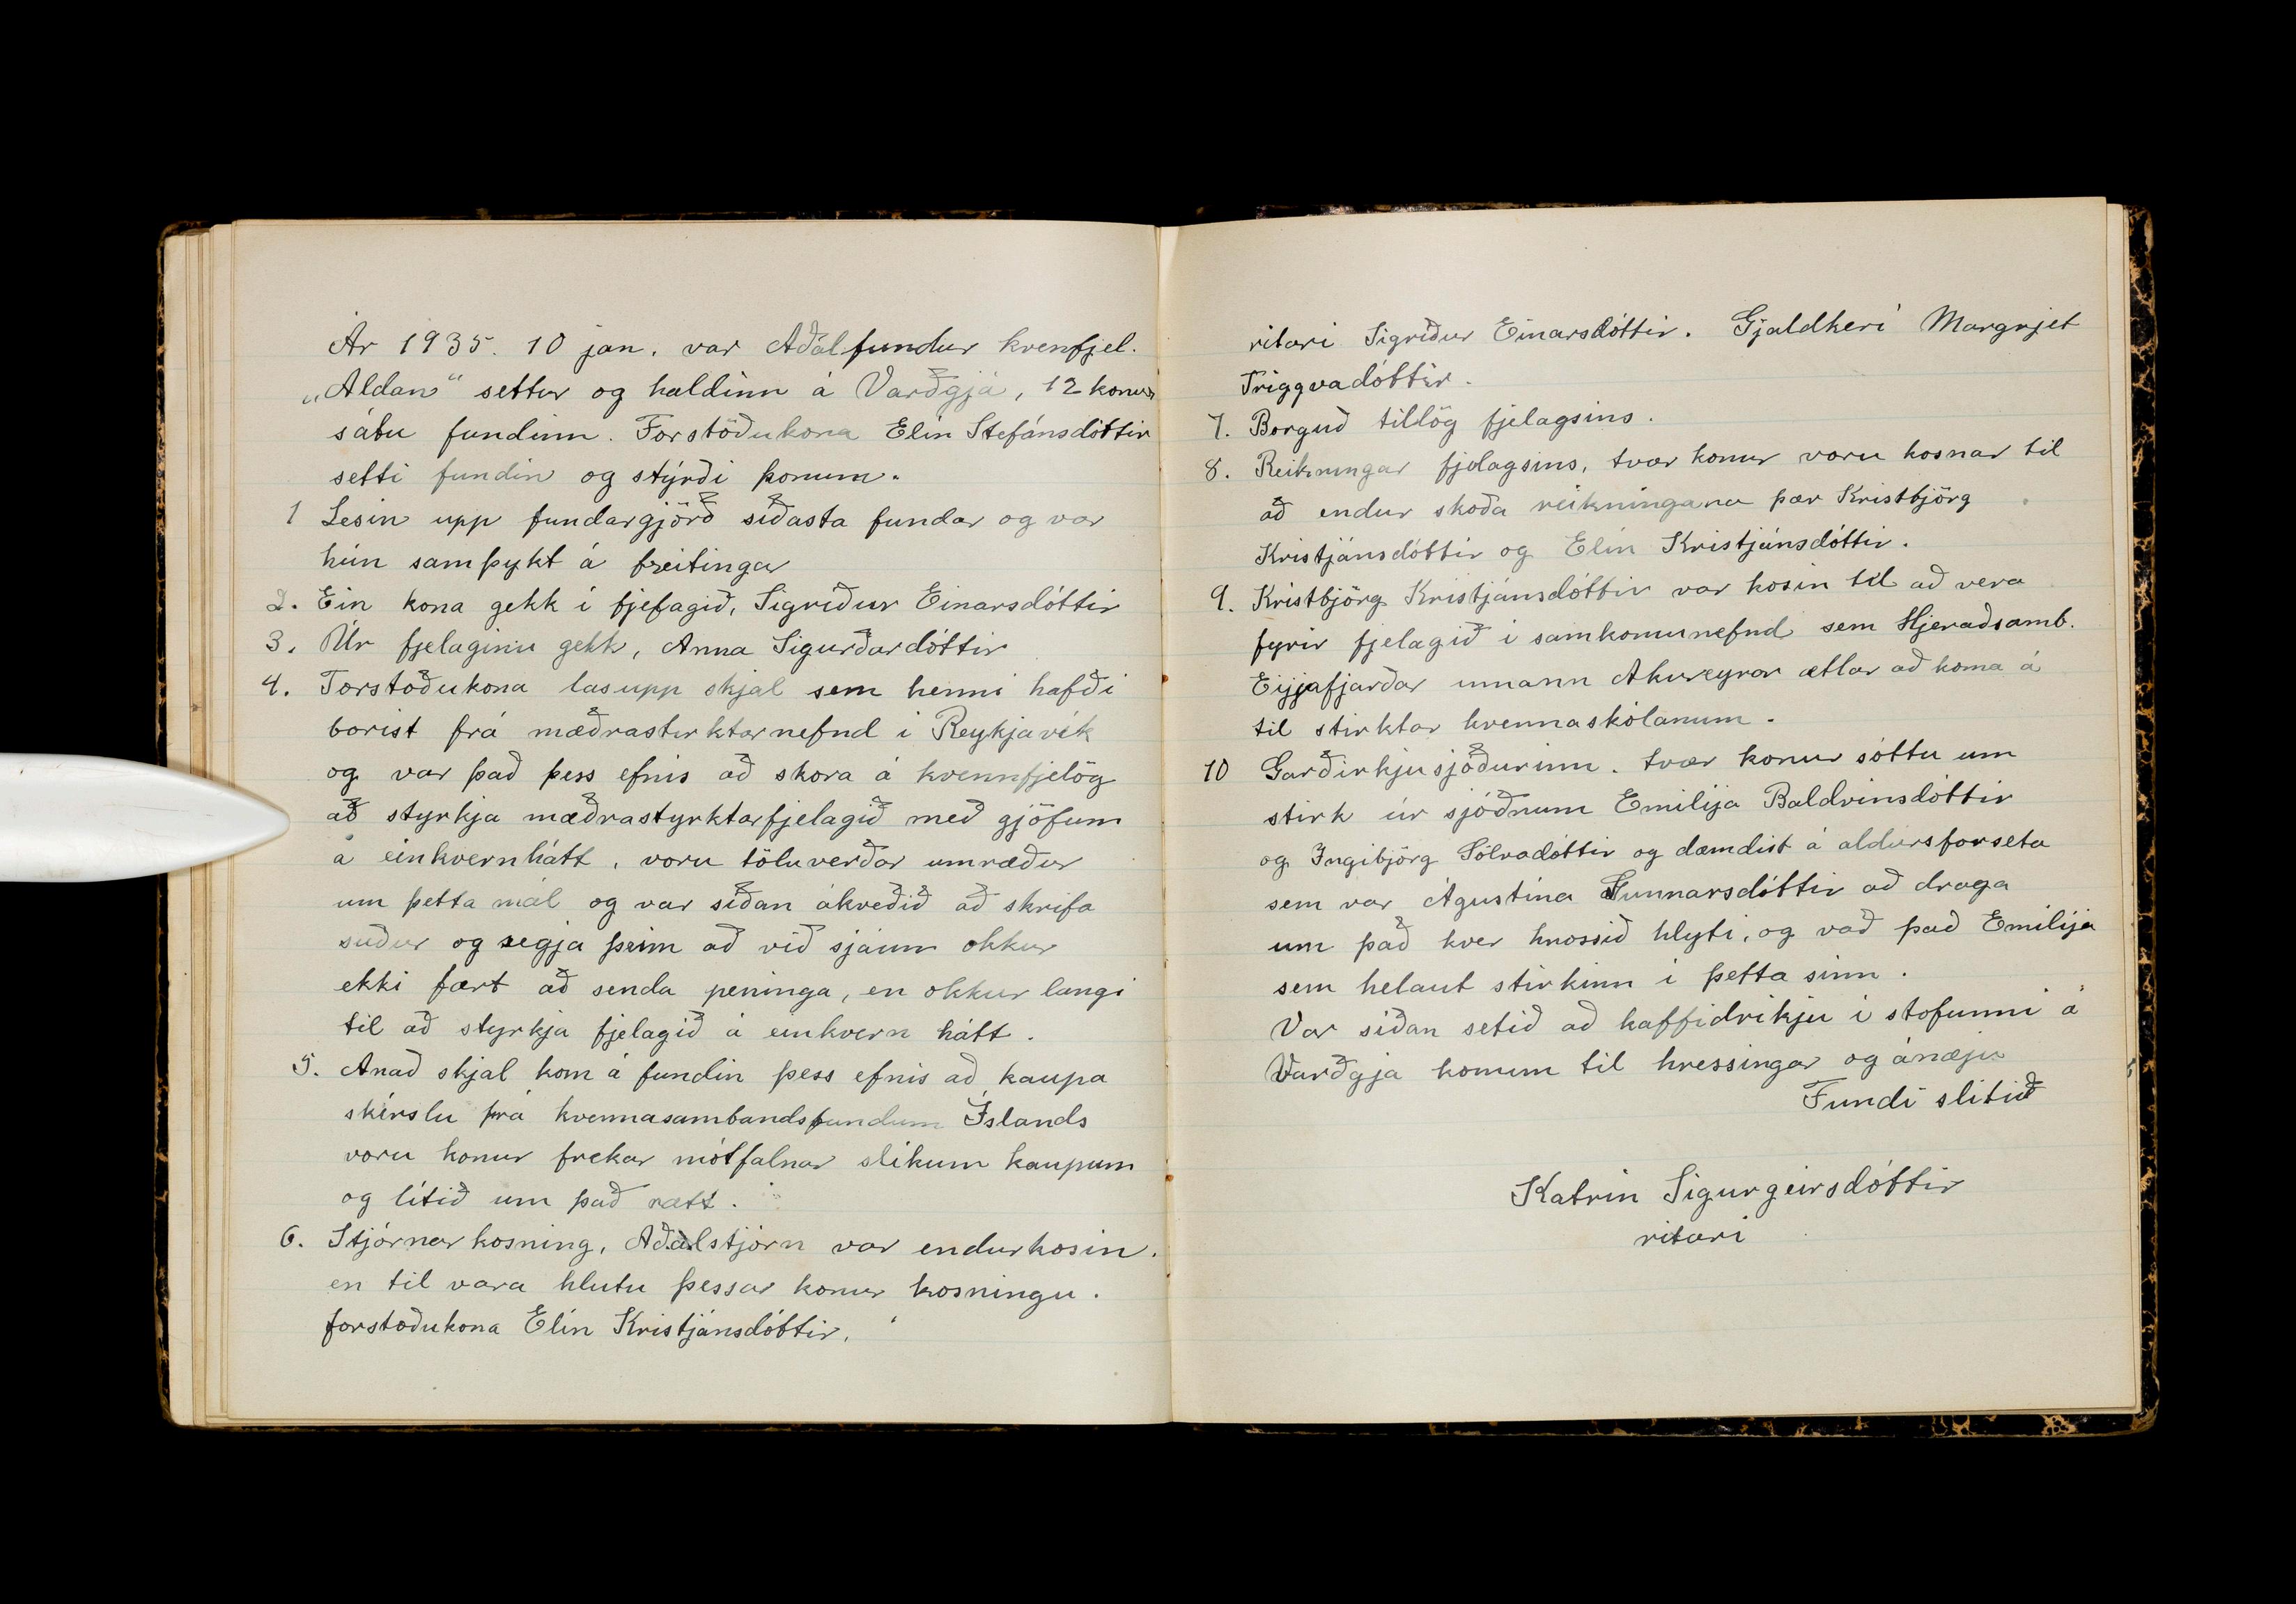 Ár 1935. 10 jan. var Aðalfundur kvenfjel.
„Aldan“ settur og haldinn á Varðgjá, 12 konur
sátu fundinn. Forstöðukona Elín Stefánsdóttir
setti fundin og stýrði þonum.
1 Lesin upp fundargjörð síðasta fundar og var
hún samþykt á freitingar
2. Ein kona gekk í fjefagið, Sigríður Einarsdóttir
3. Úr fjelaginu gekk, Anna Sigurðardóttir
4. Forstoðukona lasupp skjal sem henni hafði
borist frá mæðrastirktarnefnd í Reykjavík
og var það þess efnis að skora á kvennfjelög
að styrkja mæðrastyrktarfjelagið með gjöfum
á einkvernhátt, voru töluverðar umræður
um þetta mál og var síðan ákveðið að skrifa
suður og segja þeim að við sjáum okkur
ekki fært að senda peninga, en okkur langi
til að styrkja fjelagið á einkvern hátt.
5. Anað skjal kom á fundin þess efnis að kaupa
skírslu frá kvennasambandsfundum Íslands
voru konur frekar mótfalnar slíkum kaupum
og lítið um það rætt.
6. Stjórnarkosning, Aðalstjórn var endurkosin.
en til vara hlutu þessar konur kosningu.
forstoðukona Elín Kristjánsdóttir,
ritari Sigríður Einarsdóttir. Gjaldkeri Margrjet
Triggvadóttir.
7. Borguð tillög fjelagsins.
8. Reikningar fjelagsins, tvær konur voru kosnar til
að endur skoða reikningana þær Kristbjörg
Kristjánsdóttir og Elín Kristjánsdóttir.
9. Kristbjörg Kristjánsdóttir var kosin til að vera
fyrir fjelagið í samkomunefnd sem Hjeraðsamb.
Eyjafjarðar innann Akureyrar ætlar að koma á
til stirktar kvennaskólanum.
10 Garðirkjusjóðurinn. tvær konur sóttu um
stirk úr sjóðnum Emilija Baldvinsdóttir
og Ingibjörg Sölvadóttir og dæmdist á aldursforseta
sem var Águstína Gunnarsdóttir að draga
um það hver hnossið hlyti, og vað það Emilija
sem helaut stirkinn í þetta sinn.
Var síðan setið að kaffidrikju í stofunni á
Varðgjá konum til hressingar og ánæju
Fundi slitið
Katrín Sigurgeirsdóttir
ritari